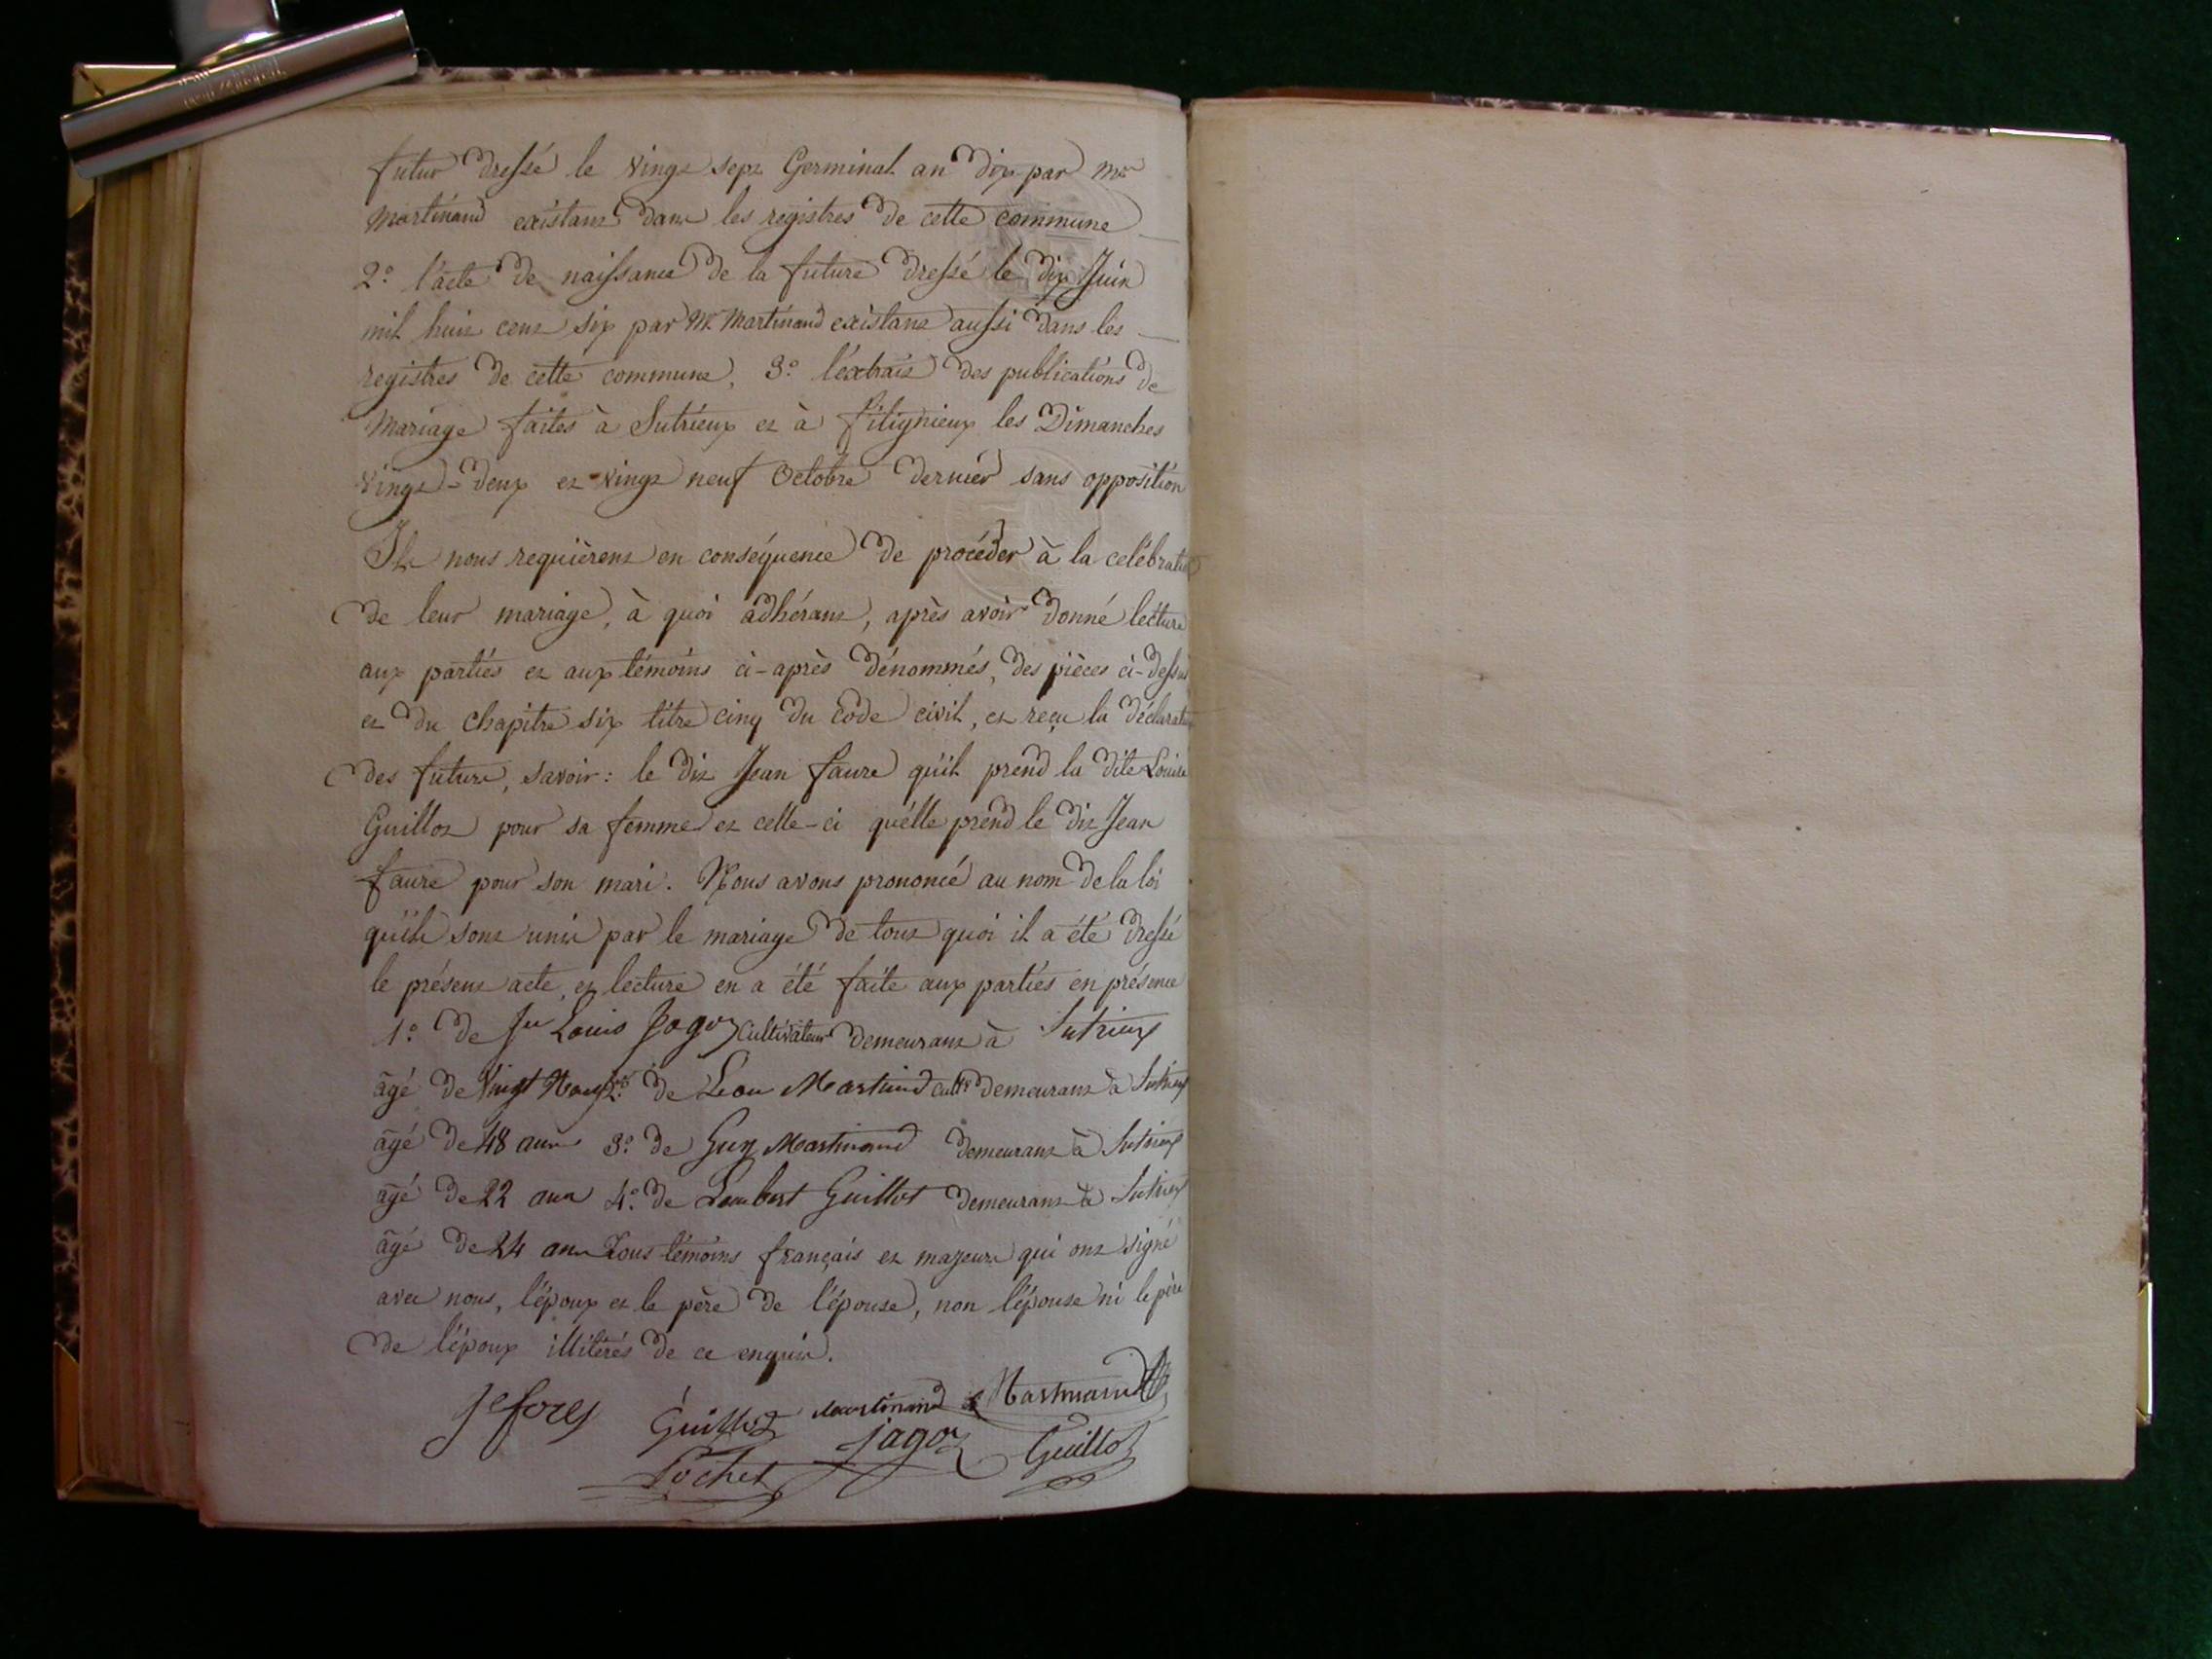 futur dressé le vingt sept Germinal an dix par Mr
Martinand existant dans les registres de cette commune
2° l'acte de naissance de la future dressé le dix Juin
mil huit cent six par Mr. Martinand existant aussi dans les
registres de cette commune, 3° l'extrait des publications de
Mariage faites à Sutrieux et à fitignieux les Dimanches
vingt-deux et vingt neuf Octobre dernier sans opposition
Ils nous requièrent en conséquence de procéder à la celébration
de leur mariage, à quoi adhérant, après avoir donné lécture
aux parties et aux témoins ci-après dénommés, des pièces ci-dessus
et du chapitre six titre cinq du code civil, et reçu la déclaration
des futurs, savoir : le dit Jean faure qu'il prend la dite Louise
Guillot pour sa femme et celle-ci qu'elle prend le dit Jean
faure pour son mari. Nous avons prononcé au nom de la loi
qu'ils sont unis par le mariage de tout quoi il a été dressé
le présent acte, et lecture en a été faite aux parties en présence
1° de Louis Jagot Cultivateur demeurant à Sutrieux
âgé de Vingt Neuf 2° de Martinand cultr demeurant à Sutrieux
âgé de 48 ans 3° de Guy Martinand demeurant à Sutrieux
âgé de 22 ans 4° de Lambert Guillot demeurant à Sutrieux
âgé de 24 ans Tous témoins français et majeurs qui ont signé
avec nous, l'époux et le père de l'épouse, non l'épouse ni le père
de l'époux illitérés de ce enquis.
Guillot Martinand Martinand
jagot Guillot
Pochet